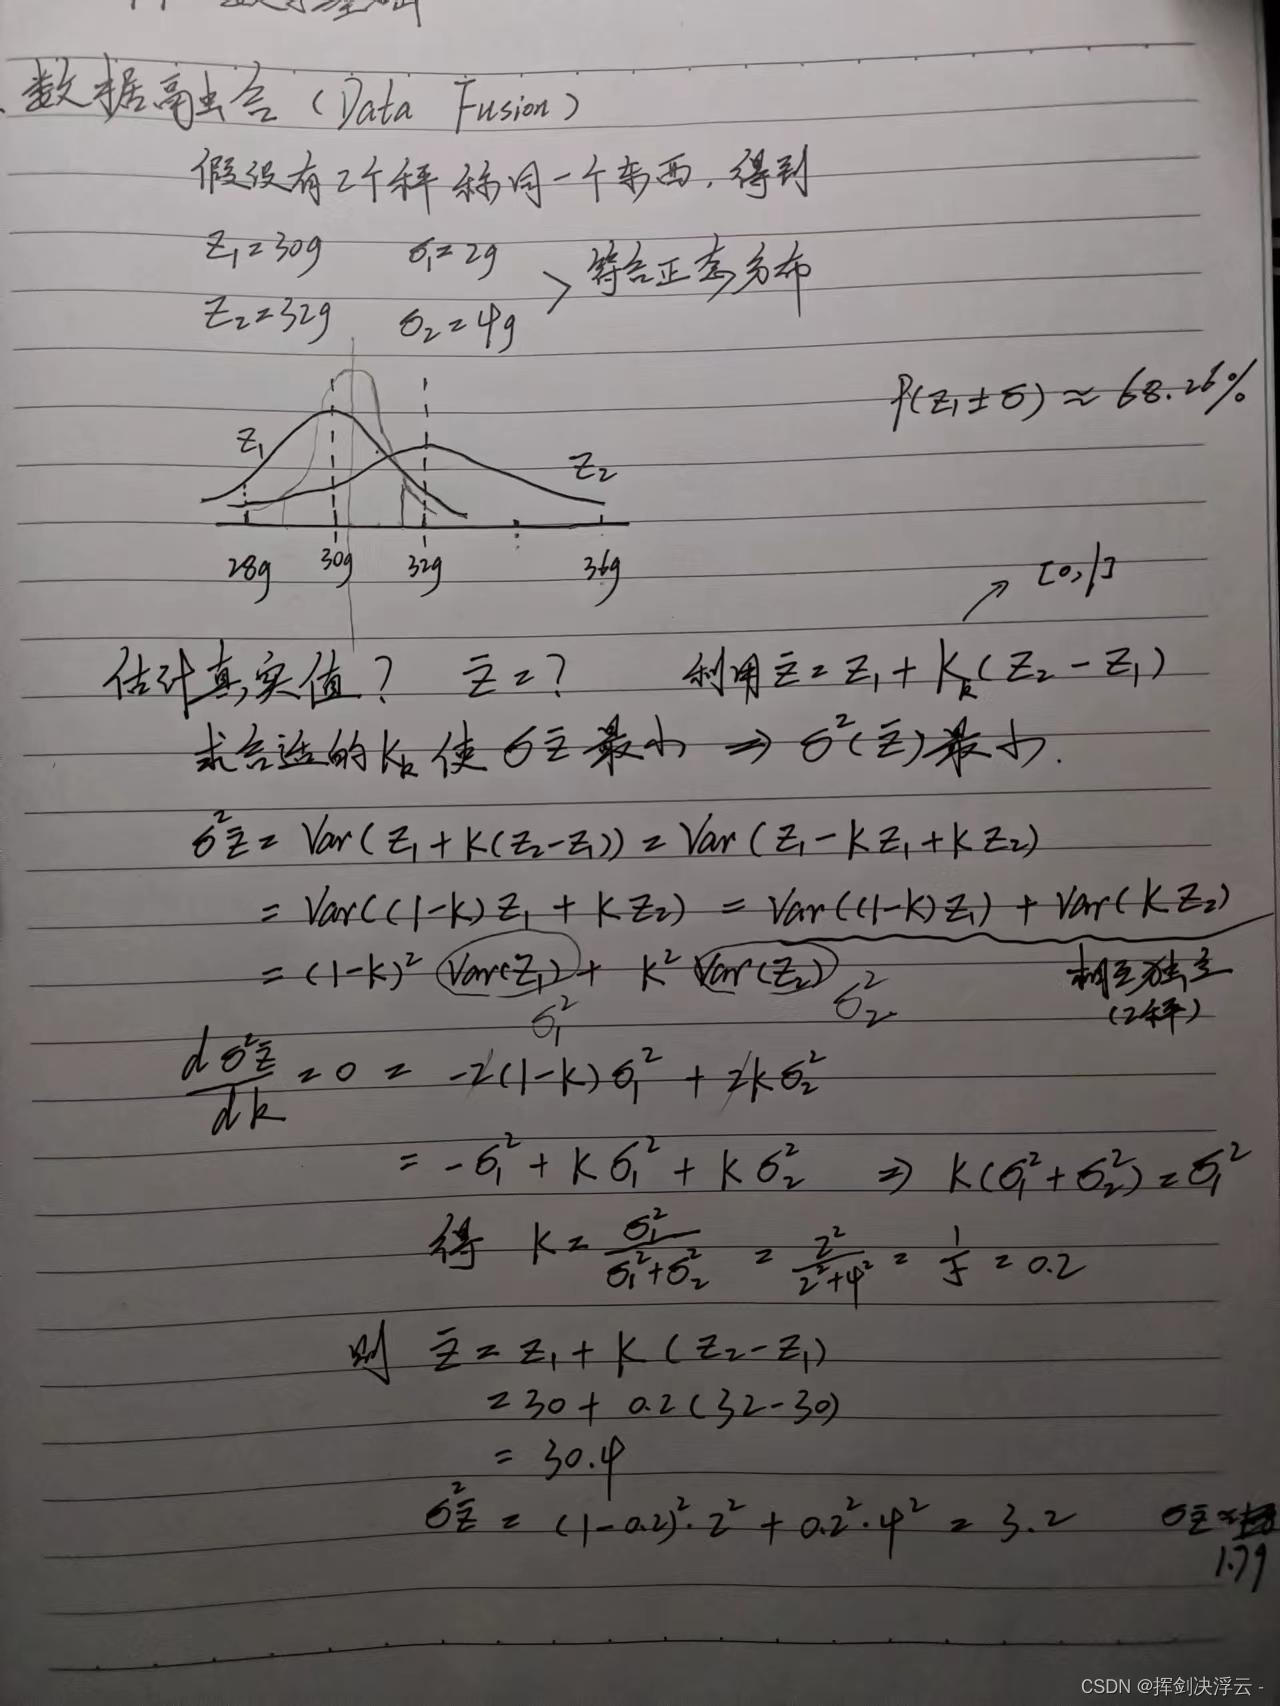 数据融合 (Data Fusion)
假设有2个秤称同一个东西, 得到
Z₁=30g σ₁=2g
Z₂=32g σ₂=4g > 符合正态分布
P(Z₁±σ)≈68.26%
Z₁ Z₂
28g 30g 32g 36g
[0,1]
估计真实值? z̄=? 利用 z̄=Z₁+Kₖ(Z₂-Z₁)
求合适的Kₖ使σz̄最小 ⇒ σ²(z̄)最小.
σ²z̄ = Var(Z₁+K(Z₂-Z₁)) = Var(Z₁-KZ₁+KZ₂)
= Var((1-K)Z₁+KZ₂) = Var((1-K)Z₁)+Var(KZ₂)
= (1-K)² Var(Z₁) + K² Var(Z₂) 相互独立
σ₁² σ₂² (2秤)
dσ²z̄/dk = 0 = -2(1-K)σ₁² + 2Kσ₂²
= -σ₁²+Kσ₁²+Kσ₂² ⇒ K(σ₁²+σ₂²)=σ₁²
得 K = σ₁²/(σ₁²+σ₂²) = 2²/(2²+4²) = 1/5 = 0.2
则 z̄ = Z₁+K(Z₂-Z₁)
= 30+0.2(32-30)
= 30.4
σ²z̄ = (1-0.2)²·2²+0.2²·4² = 3.2 σz̄≈
1.79
CSDN @挥剑决浮云 -